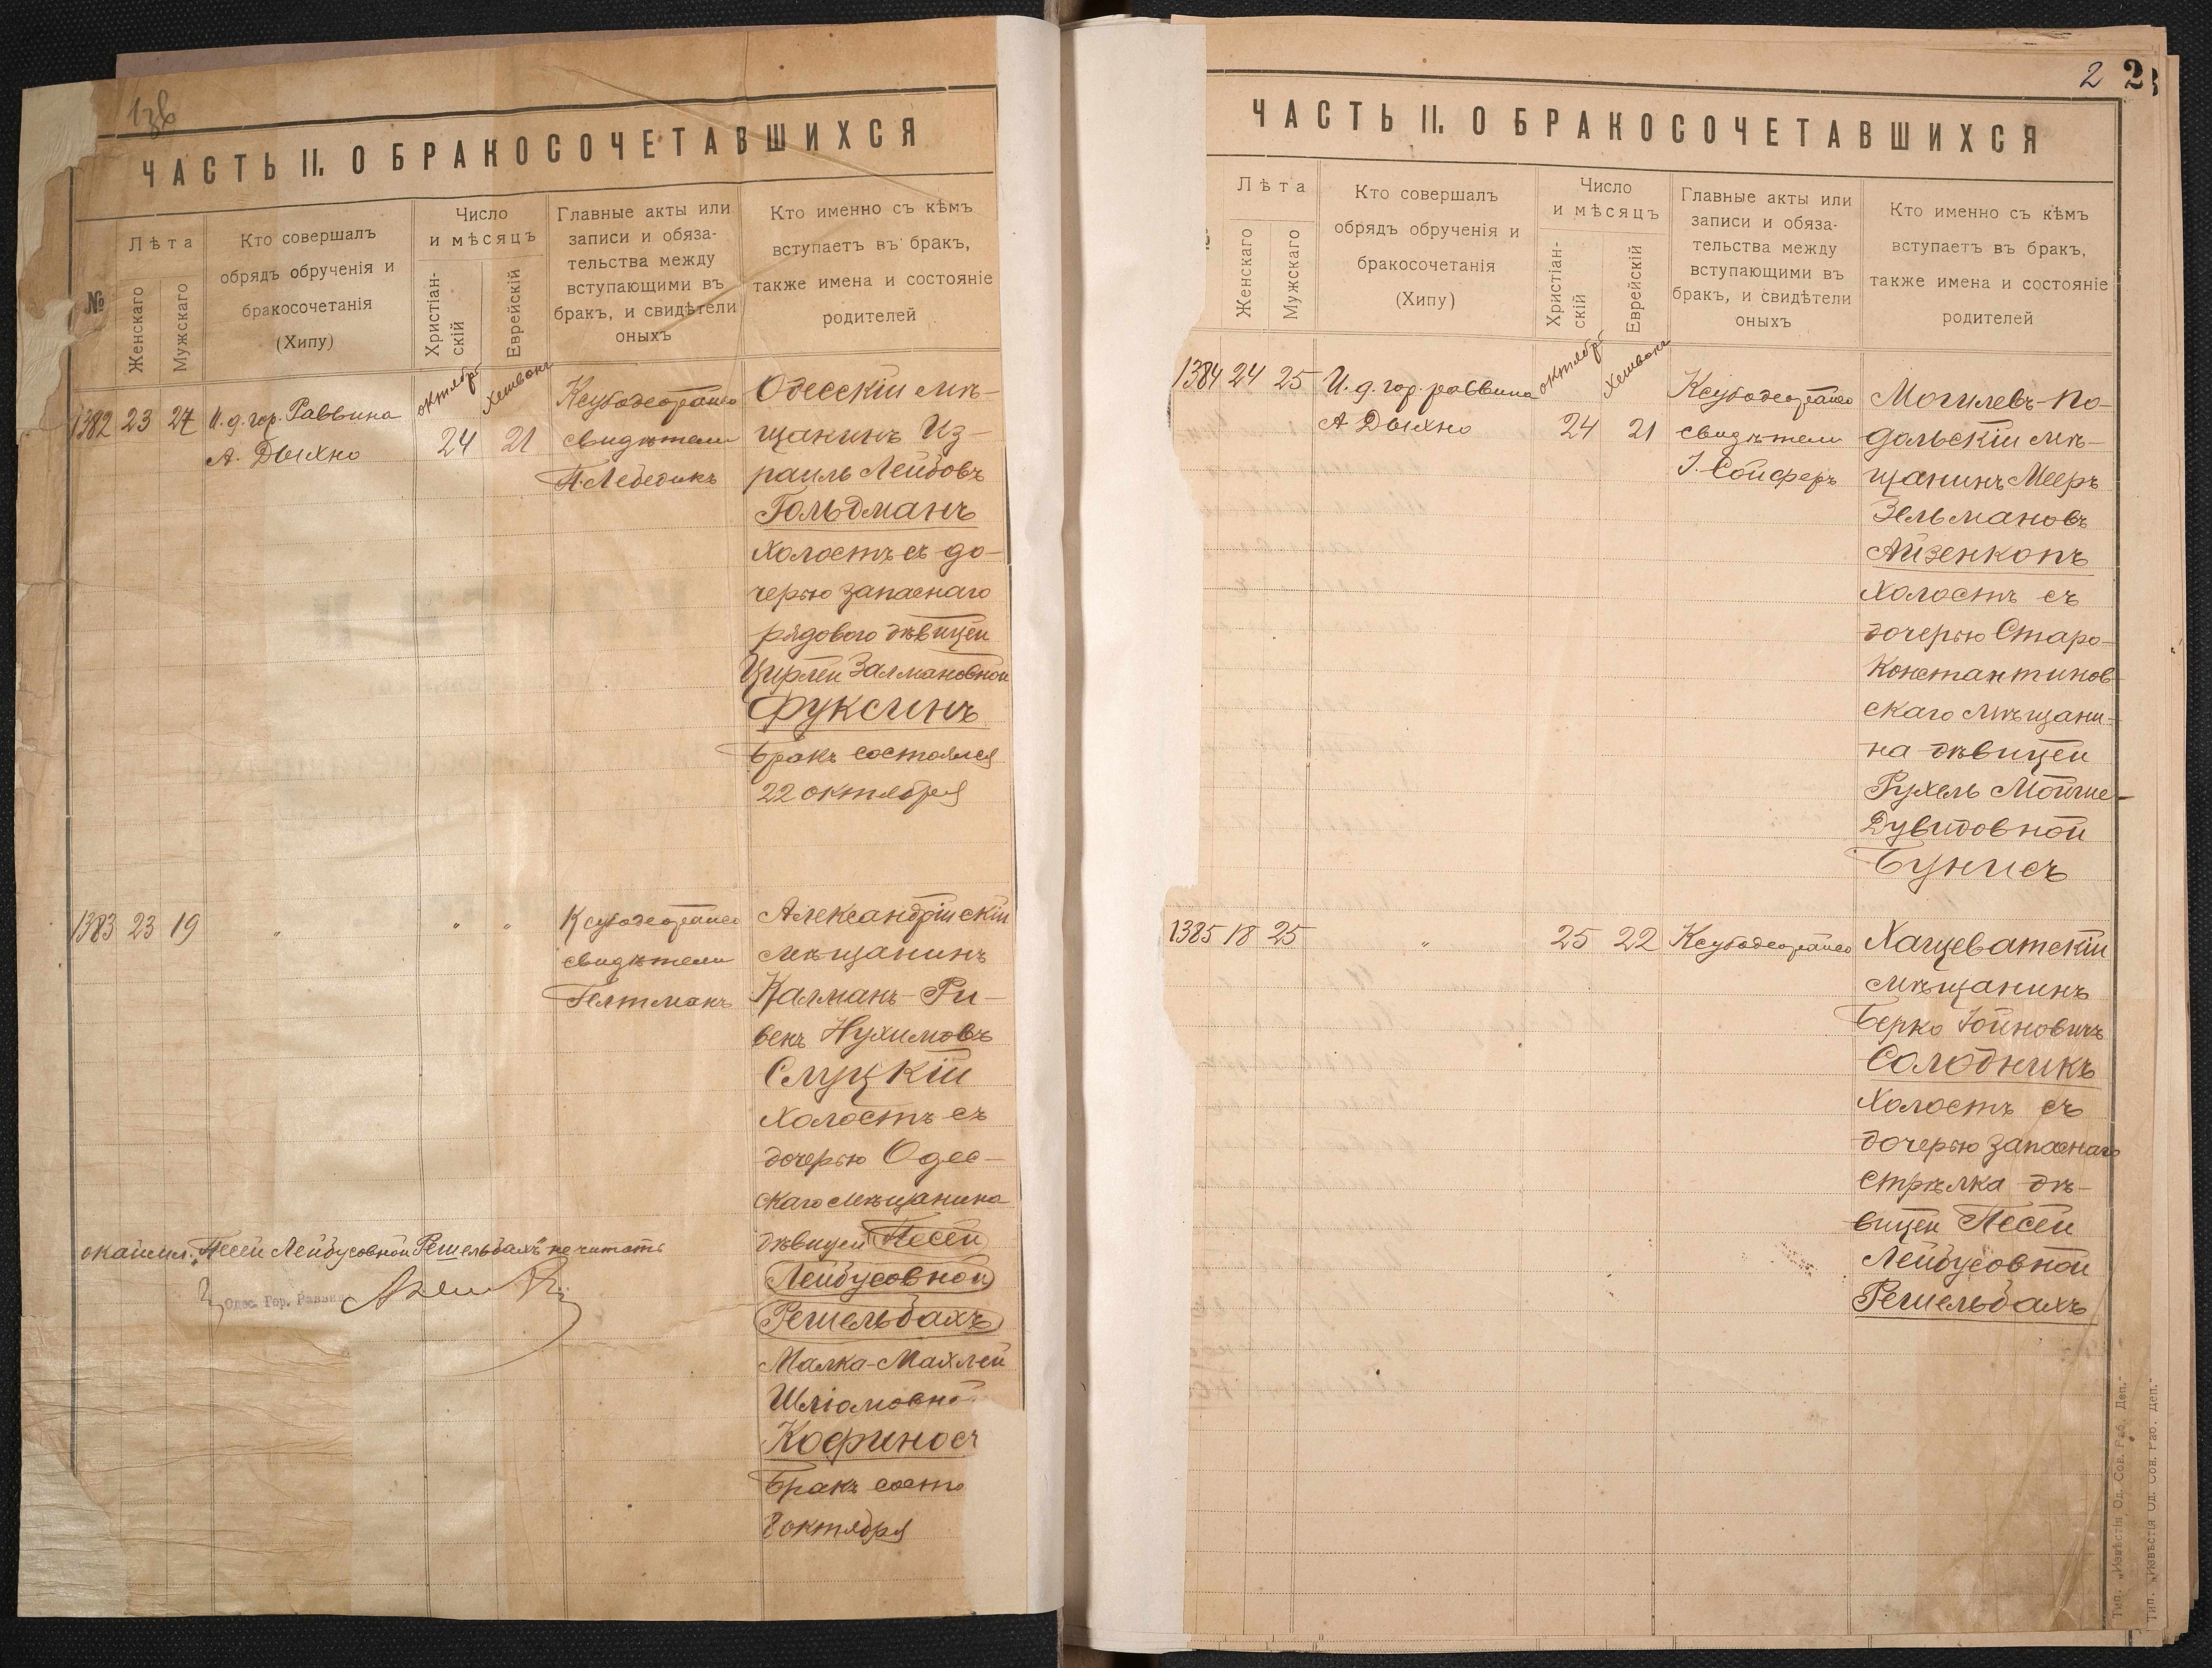 ЧАСТЬ II. О БРАКОСОЧЕТАВШИХСЯ
№
Лѣта
Женскаго
Мужскаго
Кто совершалъ
обрядъ обрученія и
бракосочетанія
(Хипу)
Число
и мѣсяцъ
Христіан-
скій
Еврейскій
Главные акты или
записи и обяза-
тельства между
вступающими въ
бракъ, и свидѣтели
оныхъ
Кто именно съ кѣмъ
вступаетъ въ бракъ,
также имена и состояніе
родителей
1382 23 27
И. д. гор. Раввина
А. Дыхно
октября
24
Хешвона
21
свидѣтели
Лебедикъ
Одесскій мѣ-
щанинъ Из-
раиль Лейбовъ
Гольдманъ
Холостъ съ до-
черью запаснаго
рядового дѣвицей
Цирлей Залмановной
Фуксинъ
Бракъ состоялся
22 октября
1383 23 19
"
" "
свидѣтели
Гелтманъ
Александрійскій
мѣщанинъ
Калманъ-Ри-
векъ Нухимовъ
Слуцкій
Холостъ съ
дочерью Одес-
скаго мѣщанина
дѣвицей Песей
Лейбусовной
Решельбахъ
Малка-Махлей
Шліомовно
Кофиносъ
Бракъ состо
8 октября
окаймл. "Песей Лейбусовной Решельбахъ" не читать
Одес. Гор. Раввин
2 2
ЧАСТЬ II. О БРАКОСОЧЕТАВШИХСЯ
Лѣта
Женскаго
Мужскаго
Кто совершалъ
обрядъ обрученія и
бракосочетанія
(Хипу)
Число
и мѣсяцъ
Христіан-
скій
Еврейскій
Главные акты или
записи и обяза-
тельства между
вступающими въ
бракъ, и свидѣтели
оныхъ
Кто именно съ кѣмъ
вступаетъ въ бракъ,
также имена и состояніе
родителей
1384 24 25
И. д. гор. раввина
А Дыхно
октября
24
Хешвона
21
свидѣтели
І. Сойферъ
Могилевъ-По-
дольскій мѣ-
щанинъ Мееръ
Зельмановъ
Айзенкопъ
Холостъ съ
дочерью Старо-
Константинов-
скаго мѣщани-
на дѣвицей
Рухель Мойше-
Дувидовной
Бунисъ
1385 18 25
"
25 22
Хащеватскій
мѣщанинъ
Берко Іойновичъ
Солодникъ
Холостъ съ
дочерью запаснаго
стрѣлка дѣ-
вицей Песей
Лейбусовной
Решельбахъ
Тип. „Извѣстія Од. Сов. Раб. Деп."
Тип. „Извѣстія Од. Сов. Раб. Деп."